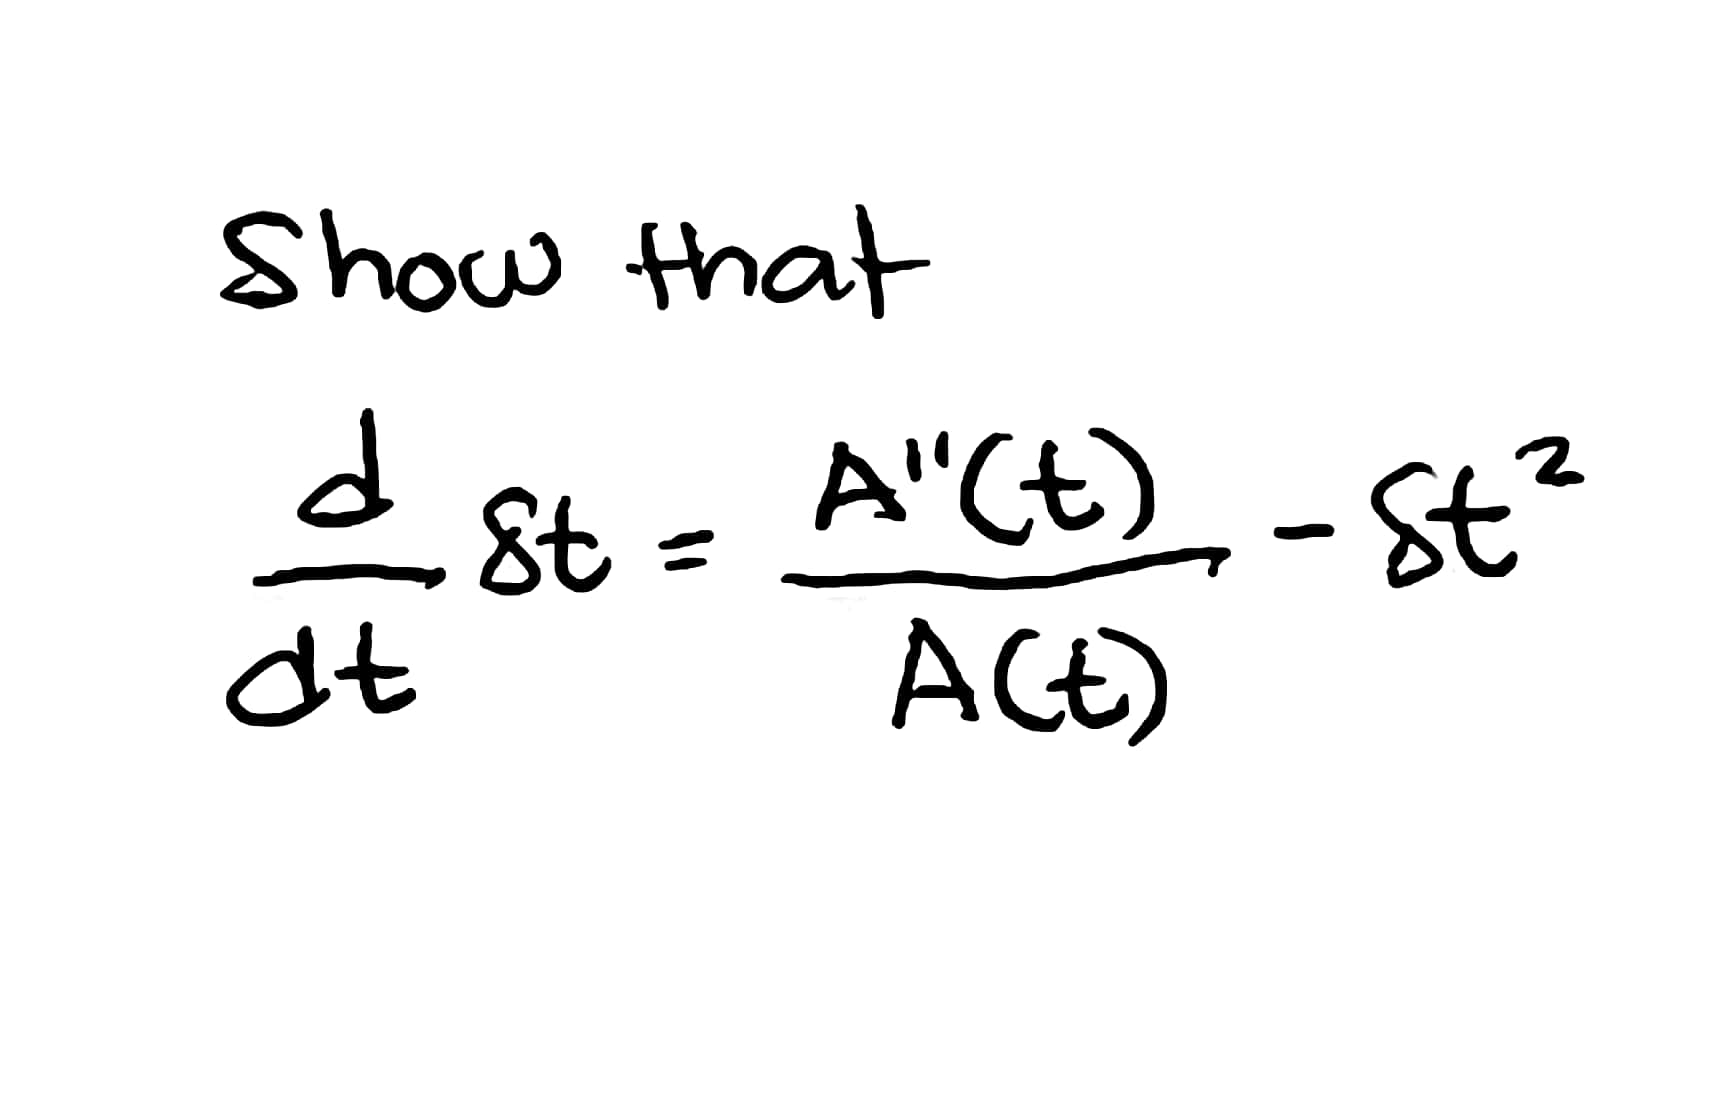 Show that
d/dt δt = A''(t)/A(t) - δt²